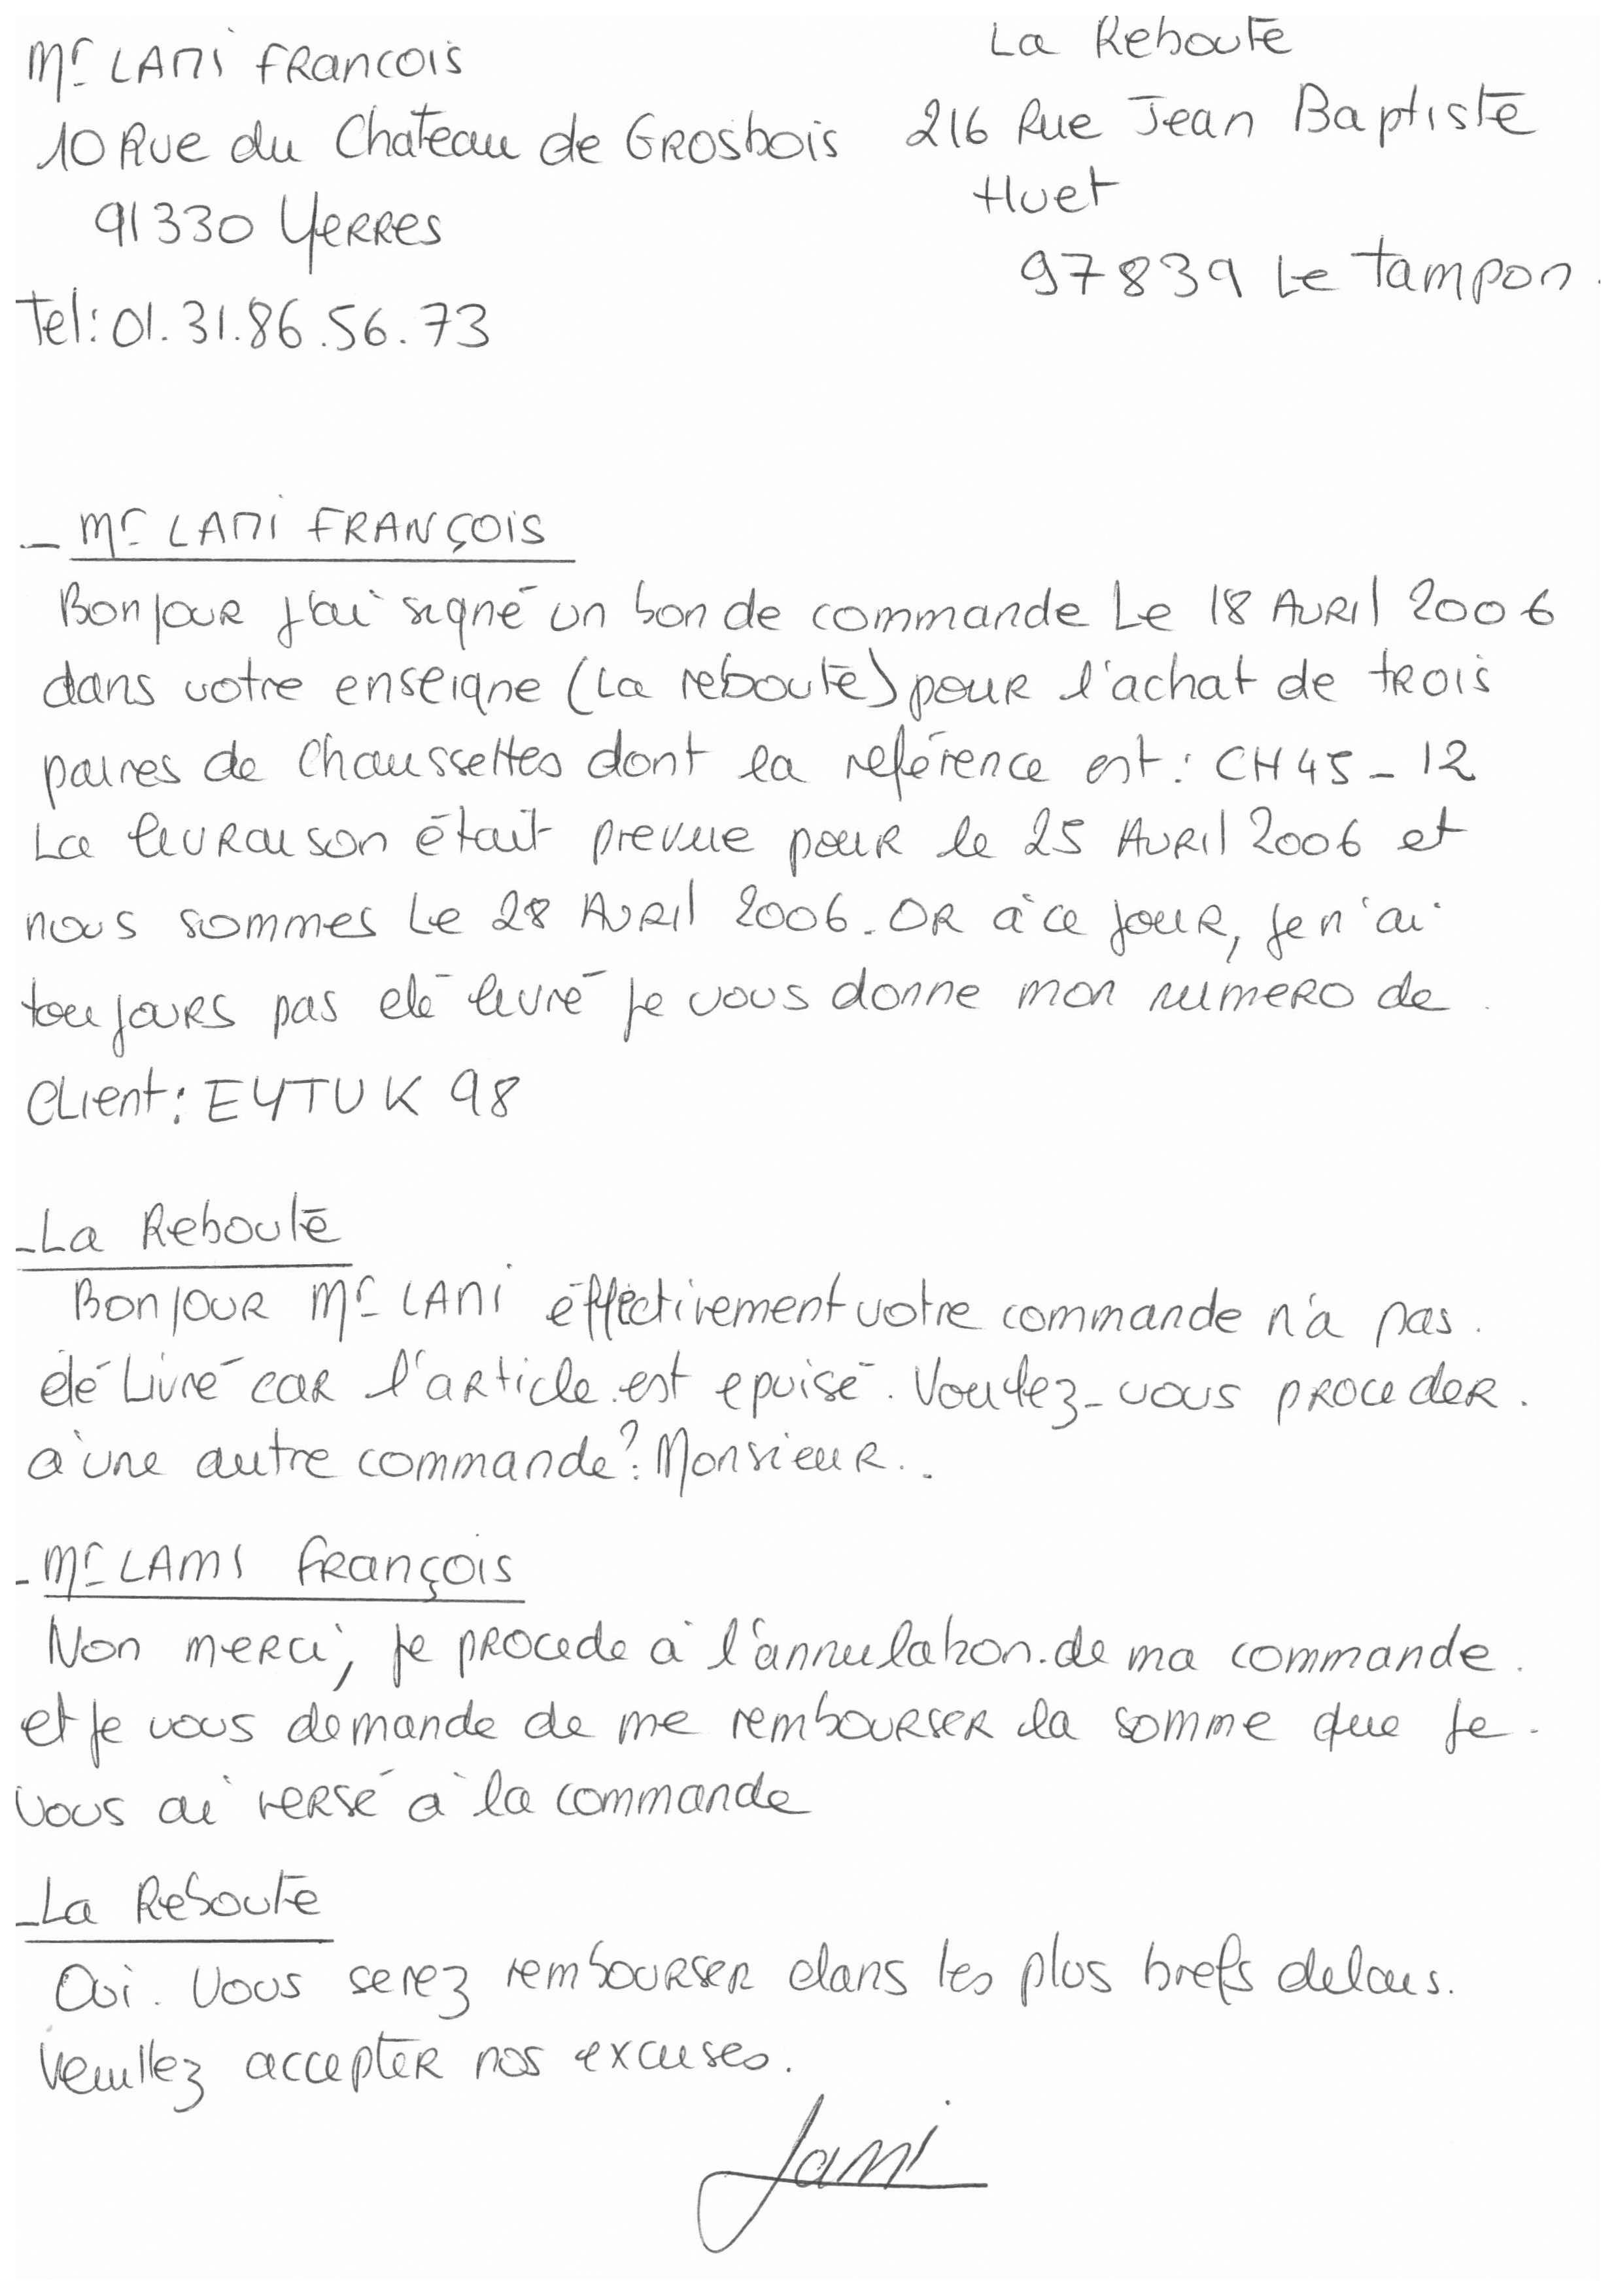 Mr LAMI FRancois
10 Rue du Chateau de GROSbois
91330 YERRES
Tel: 01.31.86.56.73
La Reboute
216 Rue Jean Baptiste
Huet
97839 Le Tampon.
- Mr LAMI FRANÇOIS
Bonjour j'ai signé un bon de commande Le 18 AVRIL 2006
dans votre enseigne (La reboute) pour l'achat de trois
paires de Chaussettes dont la reférence est : CH45-12
La livraison était prevue pour le 25 AVRIL 2006 et
nous sommes Le 28 AVRIL 2006. OR à ce jour, je n'ai
toujours pas été livré je vous donne mon numero de
Client : EYTUK 98
- La Reboute
Bonjour Mr LAMI éffectivement votre commande n'a pas
été Livré car l'article est epuisé. Voulez-vous proceder
à une autre commande? Monsieur..
- Mr LAMI François
Non merci, je procede à l'annulation de ma commande.
et je vous demande de me rembourser la somme que je
vous ai versé à la commande
- La Reboute
Oui. Vous serez rembourser dans les plus brefs delais.
Veuillez accepter nos excuses.
Lami